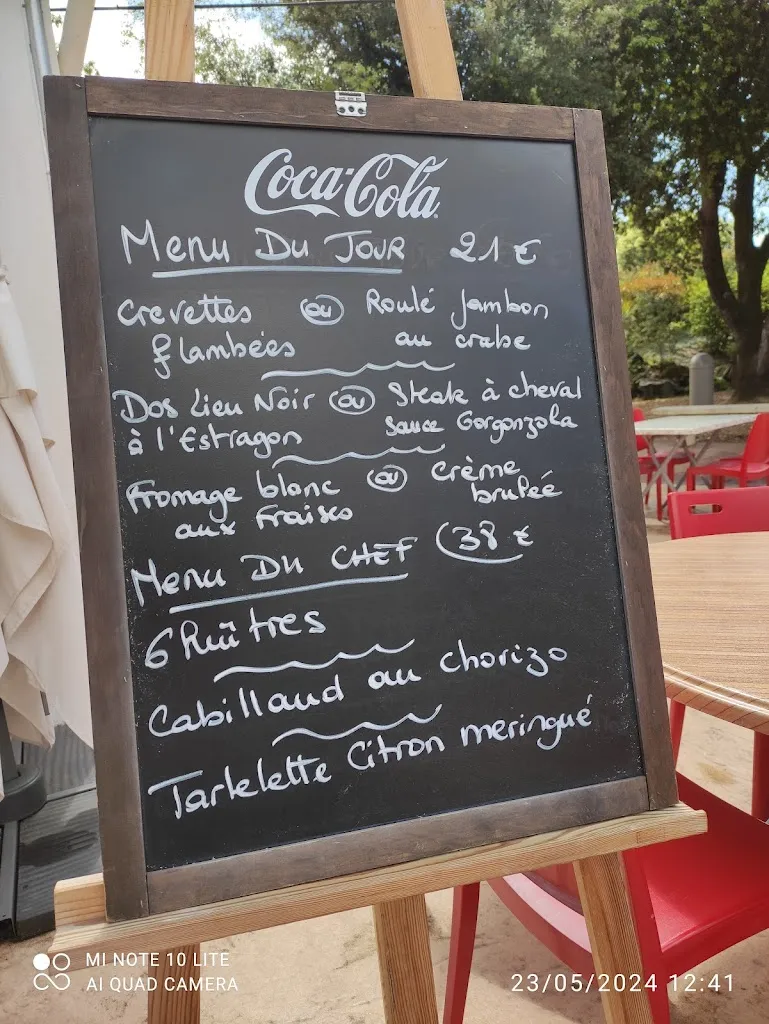 Coca-Cola
Menu Du Jour 21 €
Crevettes ou Roulé Jambon
flambées au crabe
Dos Lieu Noir ou Steak à cheval
à l'Estragon sauce Gorgonzola
Fromage blanc ou crème
aux Fraises brulée
Menu Du CHEF 38 €
6 Huîtres
Cabillaud au chorizo
Tartelette Citron meringué
MI NOTE 10 LITE
AI QUAD CAMERA
23/05/2024 12:41